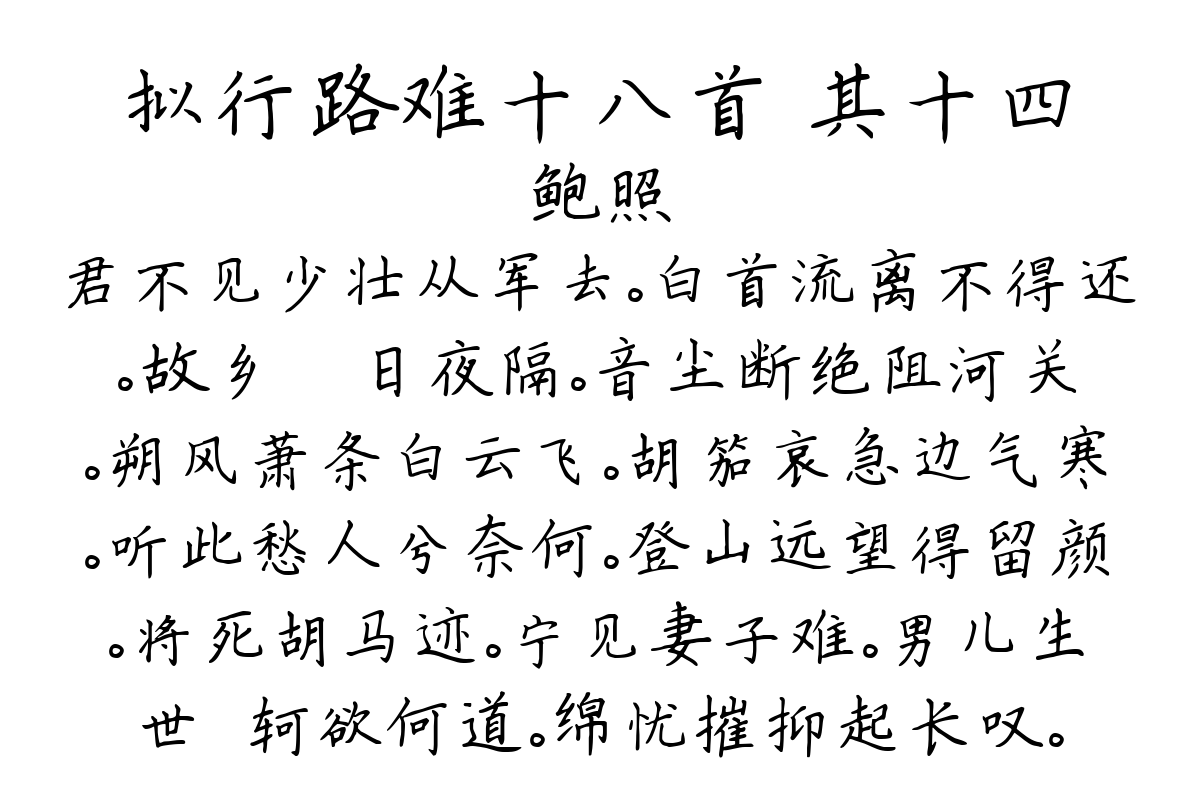 拟行路难十八首 其十四
鲍照
君不见少壮从军去。白首流离不得还
。故乡 日夜隔。音尘断绝阻河关
。朔风萧条白云飞。胡笳哀急边气寒
。听此愁人兮奈何。登山远望得留颜
。将死胡马迹。宁见妻子难。男儿生
世 轲欲何道。绵忧摧抑起长叹。